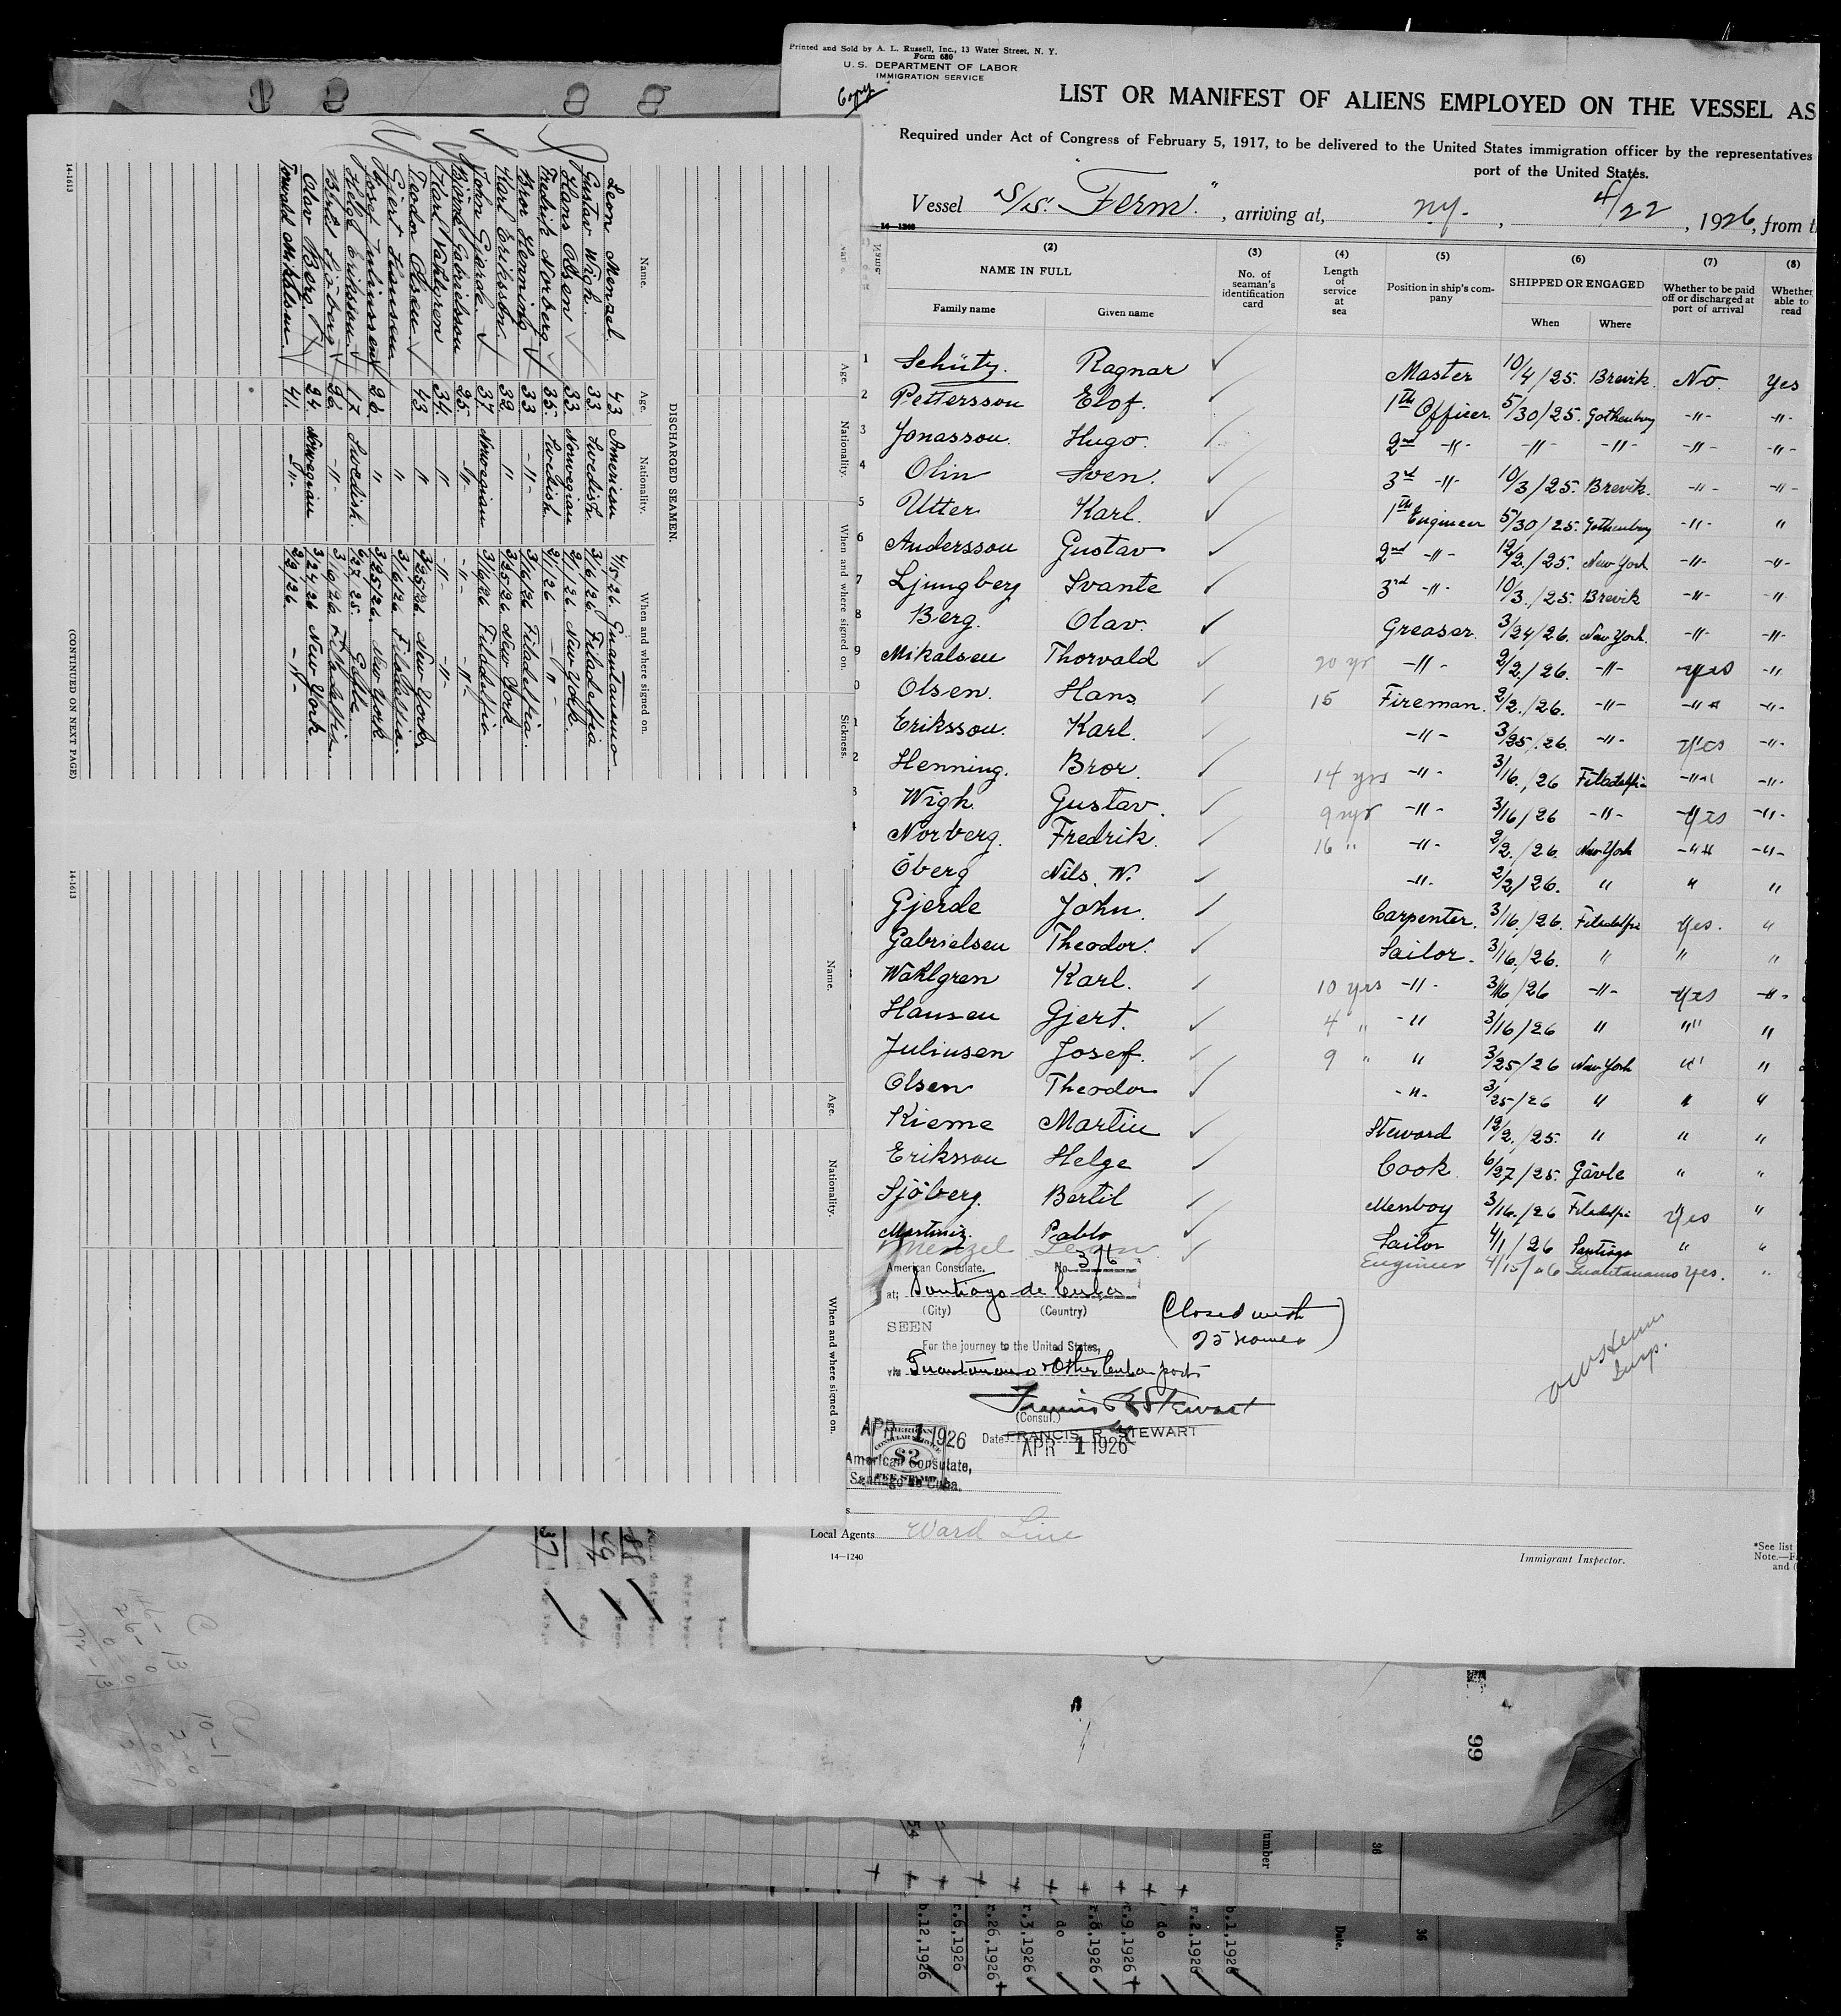 Printed and Sold by A. L. Russell, Inc., 13 Water Street, N. Y.
Form 680
U. S. DEPARTMENT OF LABOR
IMMIGRATION SERVICE
Copy
LIST OR MANIFEST OF ALIENS EMPLOYED ON THE VESSEL AS
Required under Act of Congress of February 5, 1917, to be delivered to the United States immigration officer by the representatives
port of the United States.
Vessel S/S. "Ferm", arriving at, N.Y., 4/22, 1926, from t
14—1240
(2) (3) (4) (5) (6) (7) (8)
NAME IN FULL No. of seaman's identification card Length of service at sea Position in ship's company SHIPPED OR ENGAGED Whether to be paid off or discharged at port of arrival Whether able to read
Family name Given name When Where
1 Schütz. Ragnar Master 10/4/25. Brevik. No. Yes
2 Pettersson Elof. 1th Officer. 5/30/25. Gothenburg -"- -"-
3 Jonasson. Hugo. 2nd -"- -"- -"- -"- -"-
4 Olin Sven. 3rd -"- 10/3/25. Brevik. -"- -"-
5 Utter Karl. 1th Engineer 5/30/25. Gothenburg -"- "
6 Andersson Gustav 2nd -"- 12/2./25. New York -"- -"-
7 Ljungberg Svante 3rd -"- 10/3./25. Brevik -"- "
8 Berg. Olav. Greaser. 3/24/26. New York. -"- -"-
9 Mikalsen Thorvald 20 yr -"- 2/2./26. -"- yes -"
0 Olsen. Hans. 15 Fireman. 2/2./26. -"- -"- -"-
1 Eriksson. Karl. -"- 3/25./26. -"- yes -"-
2 Henning. Bror. 14 yrs -"- 3/16./26 Filadelfia -"- -"-
3 Wigh. Gustav. 9 yr -"- 3/16/26 -"- yes -"-
Norberg. Fredrik. 16 " -"- 2/2./26. New York -"- -"-
Öberg Nils. W. -"- 2/2/26. " " "
Gjerde John. Carpenter. 3/16./26. Filadelfia Yes. "
Gabrielsen Theodor. Sailor. 3/16./26. " " "
Wahlgren Karl. 10 yrs -"- 3/16/26 -"- yes -"-
Hansen Gjert. 4 " -" 3/16/26 " " "
Juliusen Josef. 9 " " 3/25/26 New York " "
Olsen Theodor -"- 3/25/26 " " "
Kieme Martin Steward 12/2./25. " " "
Eriksson Helge Cook. 6/27/25. Gävle " "
Sjöberg. Bertil Messboy 3/16./26 Filadelfia Yes "
Martiniz. Pablo Sailor 4/1/26 Santiago " "
Menzel Leon Engineer 4/15/26 Guantanamo Yes. "
American Consulate. No. 376
at; Santiago de Cuba
(City) (Country)
(Closed with
25 names)
SEEN
For the journey to the United States,
via Guantanamo & Other Cuban ports
Francis R Stewart
(Consul.)
FRANCIS R. STEWART
Date APR 1 1926
APR 1 1926
AMERICAN
CONSULAR SERVICE
$2
FEE STAMP
American Consulate,
Santiago de Cuba.
Insp.
Local Agents Ward Line
14—1240
Immigrant Inspector.
*See list
Note.—F
and (
DISCHARGED SEAMEN.
Name. Age. Nationality. When and where signed on.
Leon Menzel 43 American 4/15/26. Guantanamo.
Gustav Wigh. 33. Swedish. 3/16/26 Filadelfia
Hans Olsen 33 Norwegian 2/1/26. New York.
Fredrik Norberg 35. Swedish. 2/1/26 -"-
Bror Henning 33 -"- 3/16/26 Filadelfia.
Karl Eriksson 32. " 3/25/26 New York
John Gjerde. 37. Norwegian 3/16/26 Filadelfia
Björne Gabrielsson 25. -"- -"- -"-
Karl Wahlgren 34. " -"- -"-
Teodor Olsen 43 " 3/25/26 New York
Gjert Hansen " 3/16/26 Filadelfia.
Josef Juliussen 26. " 3/25/26. New York
Helge Eriksson 17 Swedish. 6/27 25. Gefle.
Bertil Sjöberg 26. -"- 3/16/26 Filadelfia.
Olav Berg. 24. Norwegian 3/24/26 New York.
Torvald Mikalsen. 41. -"- 2/2/26. -"-
14-1613
(CONTINUED ON NEXT PAGE)
Name. Age. Nationality. When and where signed on. Sickness.
14-1613
Name. Age. Nationality. When and where signed on.
99
54
umber
36
b.12,1926
r.6,1926
r.26,1926
r.3,1926
do
r.8,1926
r.9,1926
do
r.2,1926
b.1,1926
Date.
36